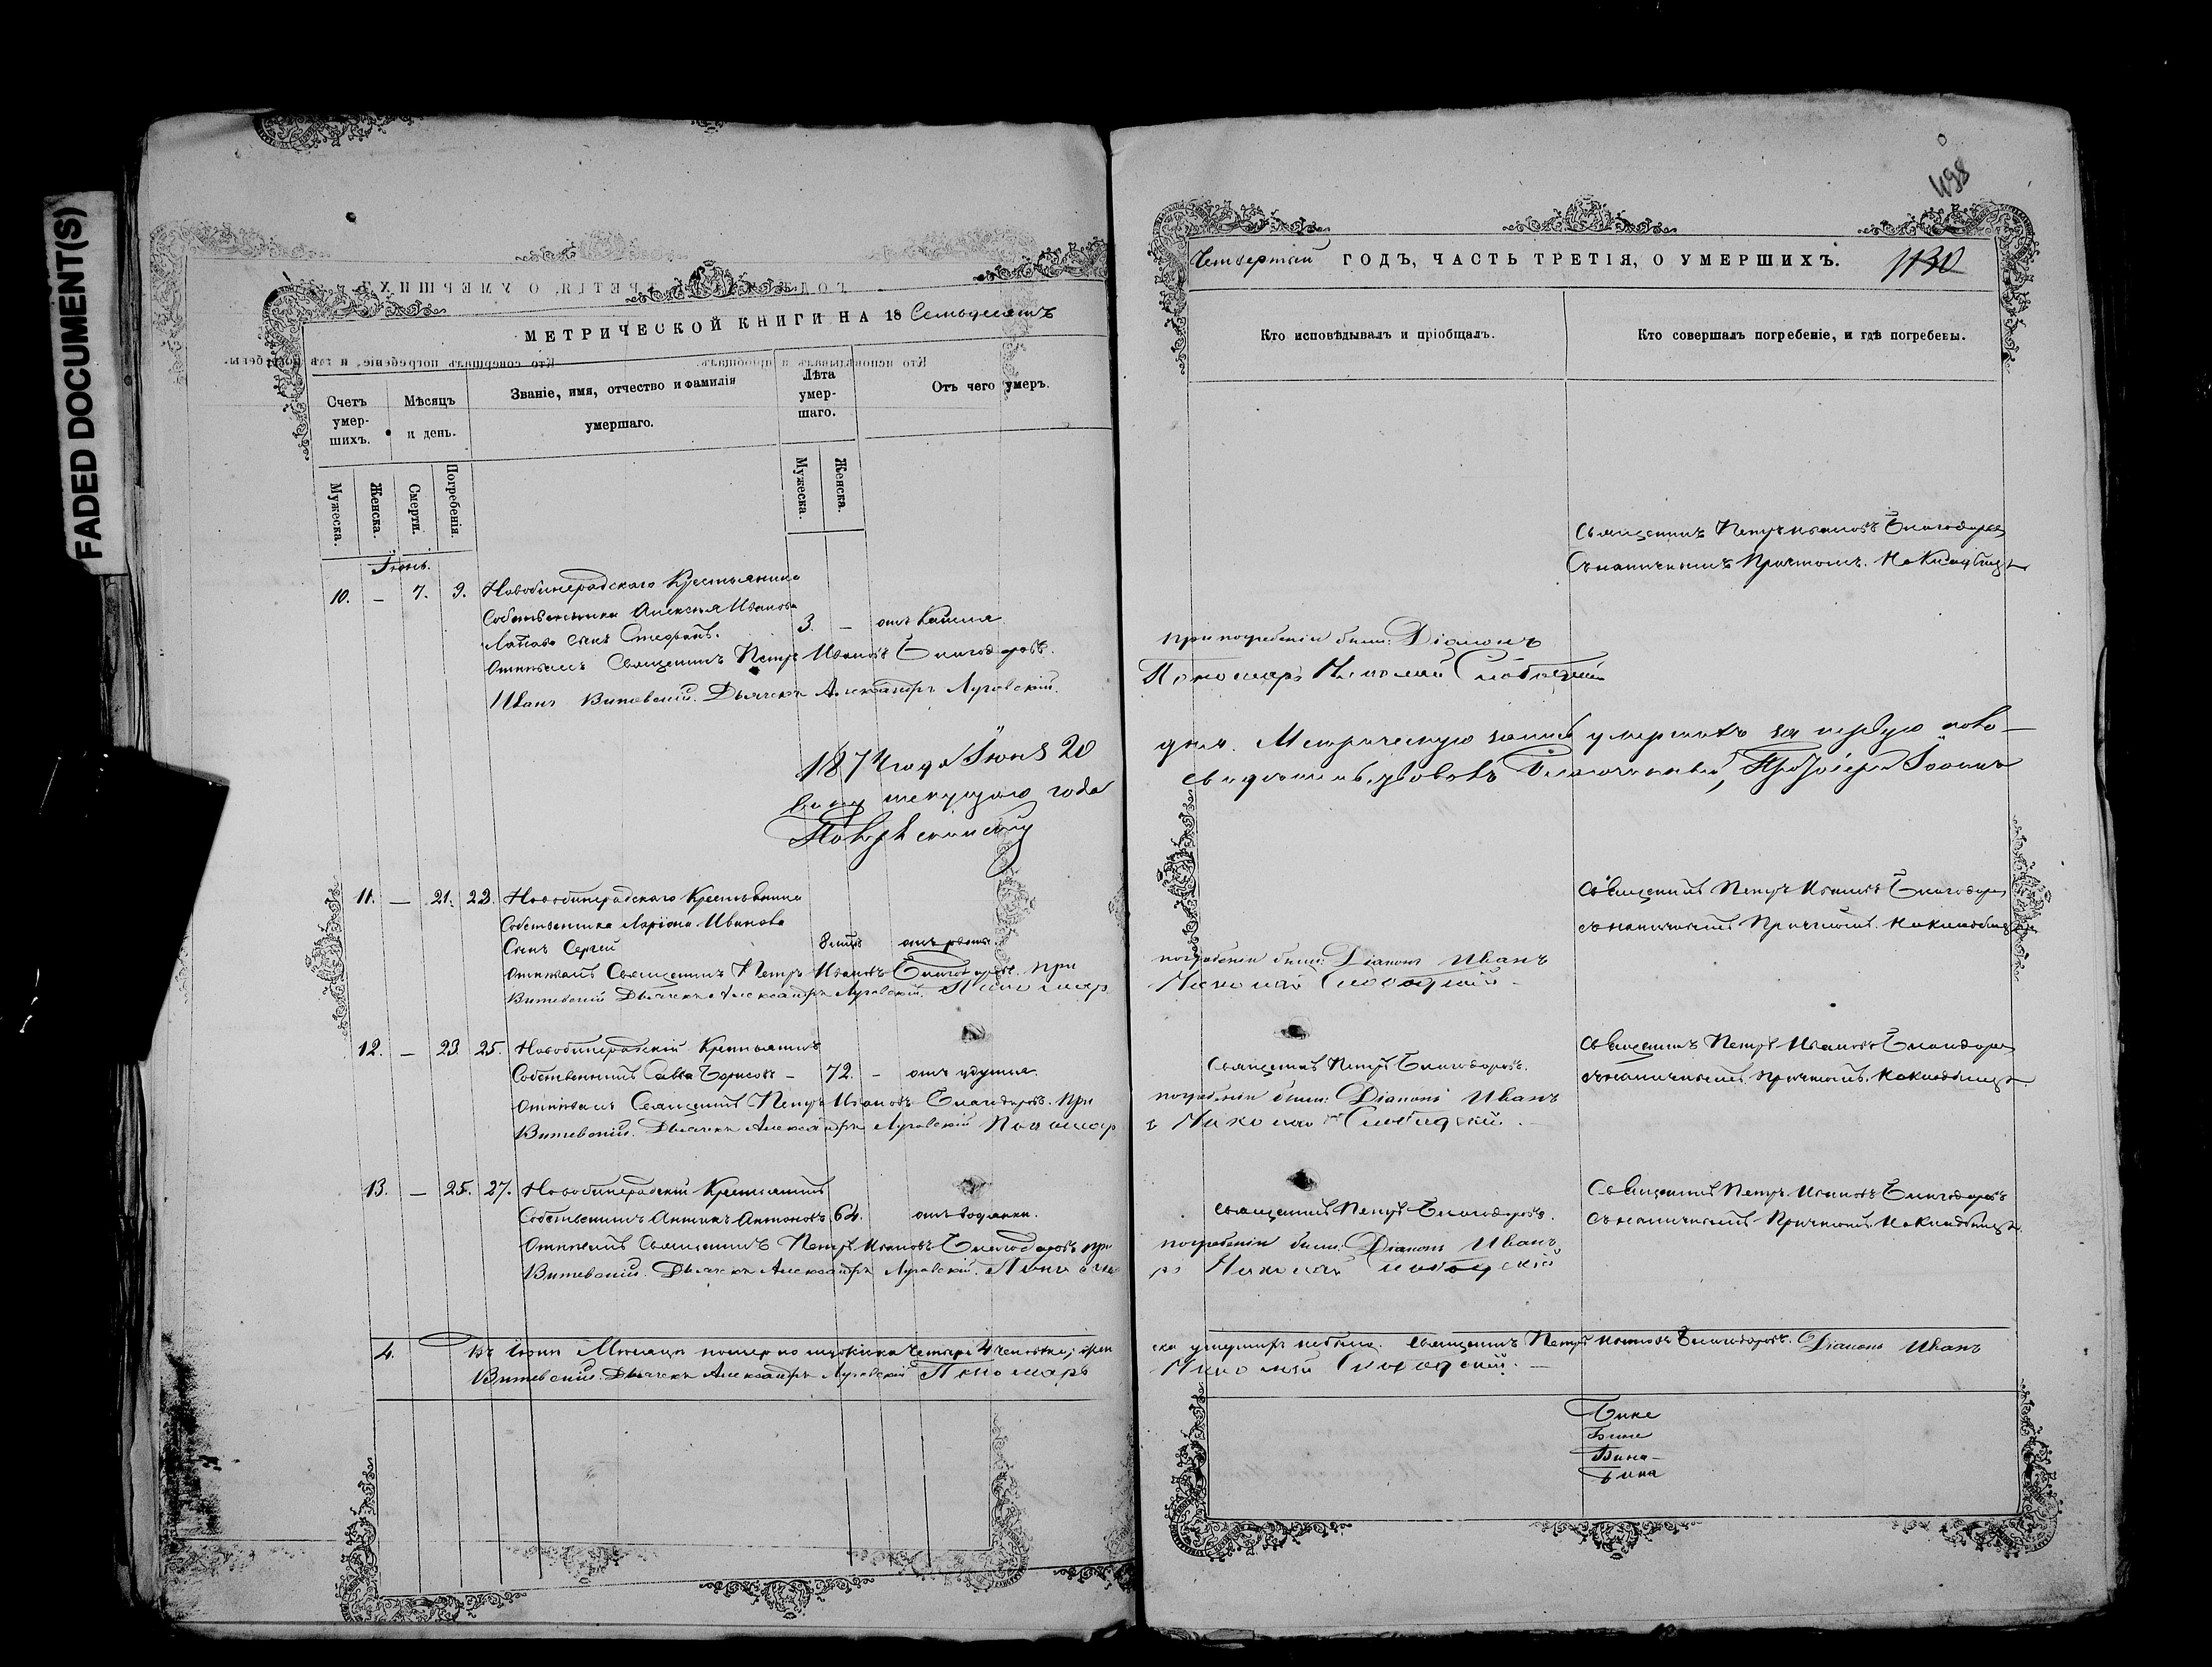 FADED DOCUMENT(S)
МЕТРИЧЕСКОЙ КНИГИ НА 18 Семьдесятъ
Счетъ умер-шихъ.
Мѣсяцъ и день.
Званіе, имя, отчество и фамилія умершаго.
Лѣта умер-шаго.
Отъ чего умеръ.
Мужеска.
Женска.
Смерти.
Погребенія.
Мужеска.
Женска.
Іюнь.
10. — 7. 9. Новобинерадскаго Крестьянина
Собственника Алексѣя Иванова
сынъ 3. — отъ кашля
Отпѣвалъ Священникъ Петръ Ивановъ Благодаровъ.
Иванъ Витевскій. Дьячекъ Александръ Луговскій.
1874 года Іюня 20
текущаго года
11. — 21. 23. Новобинерадскаго Крестьянина
Собственника Ларіона Иванова
Сынъ Сергей 8 отъ
Отпѣвалъ Священникъ Петръ Ивановъ Благодаровъ. при
Витевскій Дьячекъ Александръ Луговскій. Пономар
12. — 23. 25. Новобинерадскій Крестьянинъ
Собственникъ Савва Борисовъ — 72. — отъ удушья.
Отпѣвалъ Священникъ Петръ Ивановъ Благодаровъ. при
Витевскій. Дьячекъ Александръ Луговскій Пономар
13. — 25. 27. Новобинерадскій Крестьянинъ
Собственникъ Антонъ Антоновъ 64. отъ водянки.
Отпѣвалъ Священникъ Петръ Ивановъ Благодаровъ при
Витевскій. Дьячекъ Александръ Луговскій. Поно
4. Въ Іюнѣ Мѣсяцѣ померло мужеска четыре 4 человека; жен
Витевскій. Дьячекъ Александръ Луговскій Пономарь
498
Четвертый ГОДЪ, ЧАСТЬ ТРЕТІЯ, О УМЕРШИХЪ. 1130
Кто исповѣдывалъ и пріобщалъ.
Кто совершалъ погребеніе, и гдѣ погребены.
Священникъ Петръ Ивановъ Благодаровъ
съ наличнымъ Причтомъ. На Кладбищѣ
при погребеніи были: Діаконъ
Пономарь Николай Слободскій
дня. Метрическую запись умершихъ за первую поло-
свидетельствовалъ Благочинный, Протоіерей Іоаннъ
Священникъ Петръ Ивановъ Благодаровъ
съ наличнымъ Причтомъ. На кладбищѣ
погребеніи были: Діаконъ Иванъ
Николай Слободскій.
Священникъ Петръ Благодаровъ.
Священникъ Петръ Ивановъ Благодаровъ
съ наличнымъ причтомъ. На кладбищѣ
погребеніи были: Діаконъ Иванъ
ь Николай Слободскій.
Священникъ Петръ Благодаровъ.
Священникъ Петръ Ивановъ Благодаровъ
съ наличнымъ Причтомъ. На кладбищѣ
погребеніи были: Діаконъ Иванъ
рь Николай Слободскій
ска умершихъ небыло. Священникъ Петръ Ивановъ Благодаровъ. Діаконъ Иванъ
Николай Слободскій. —